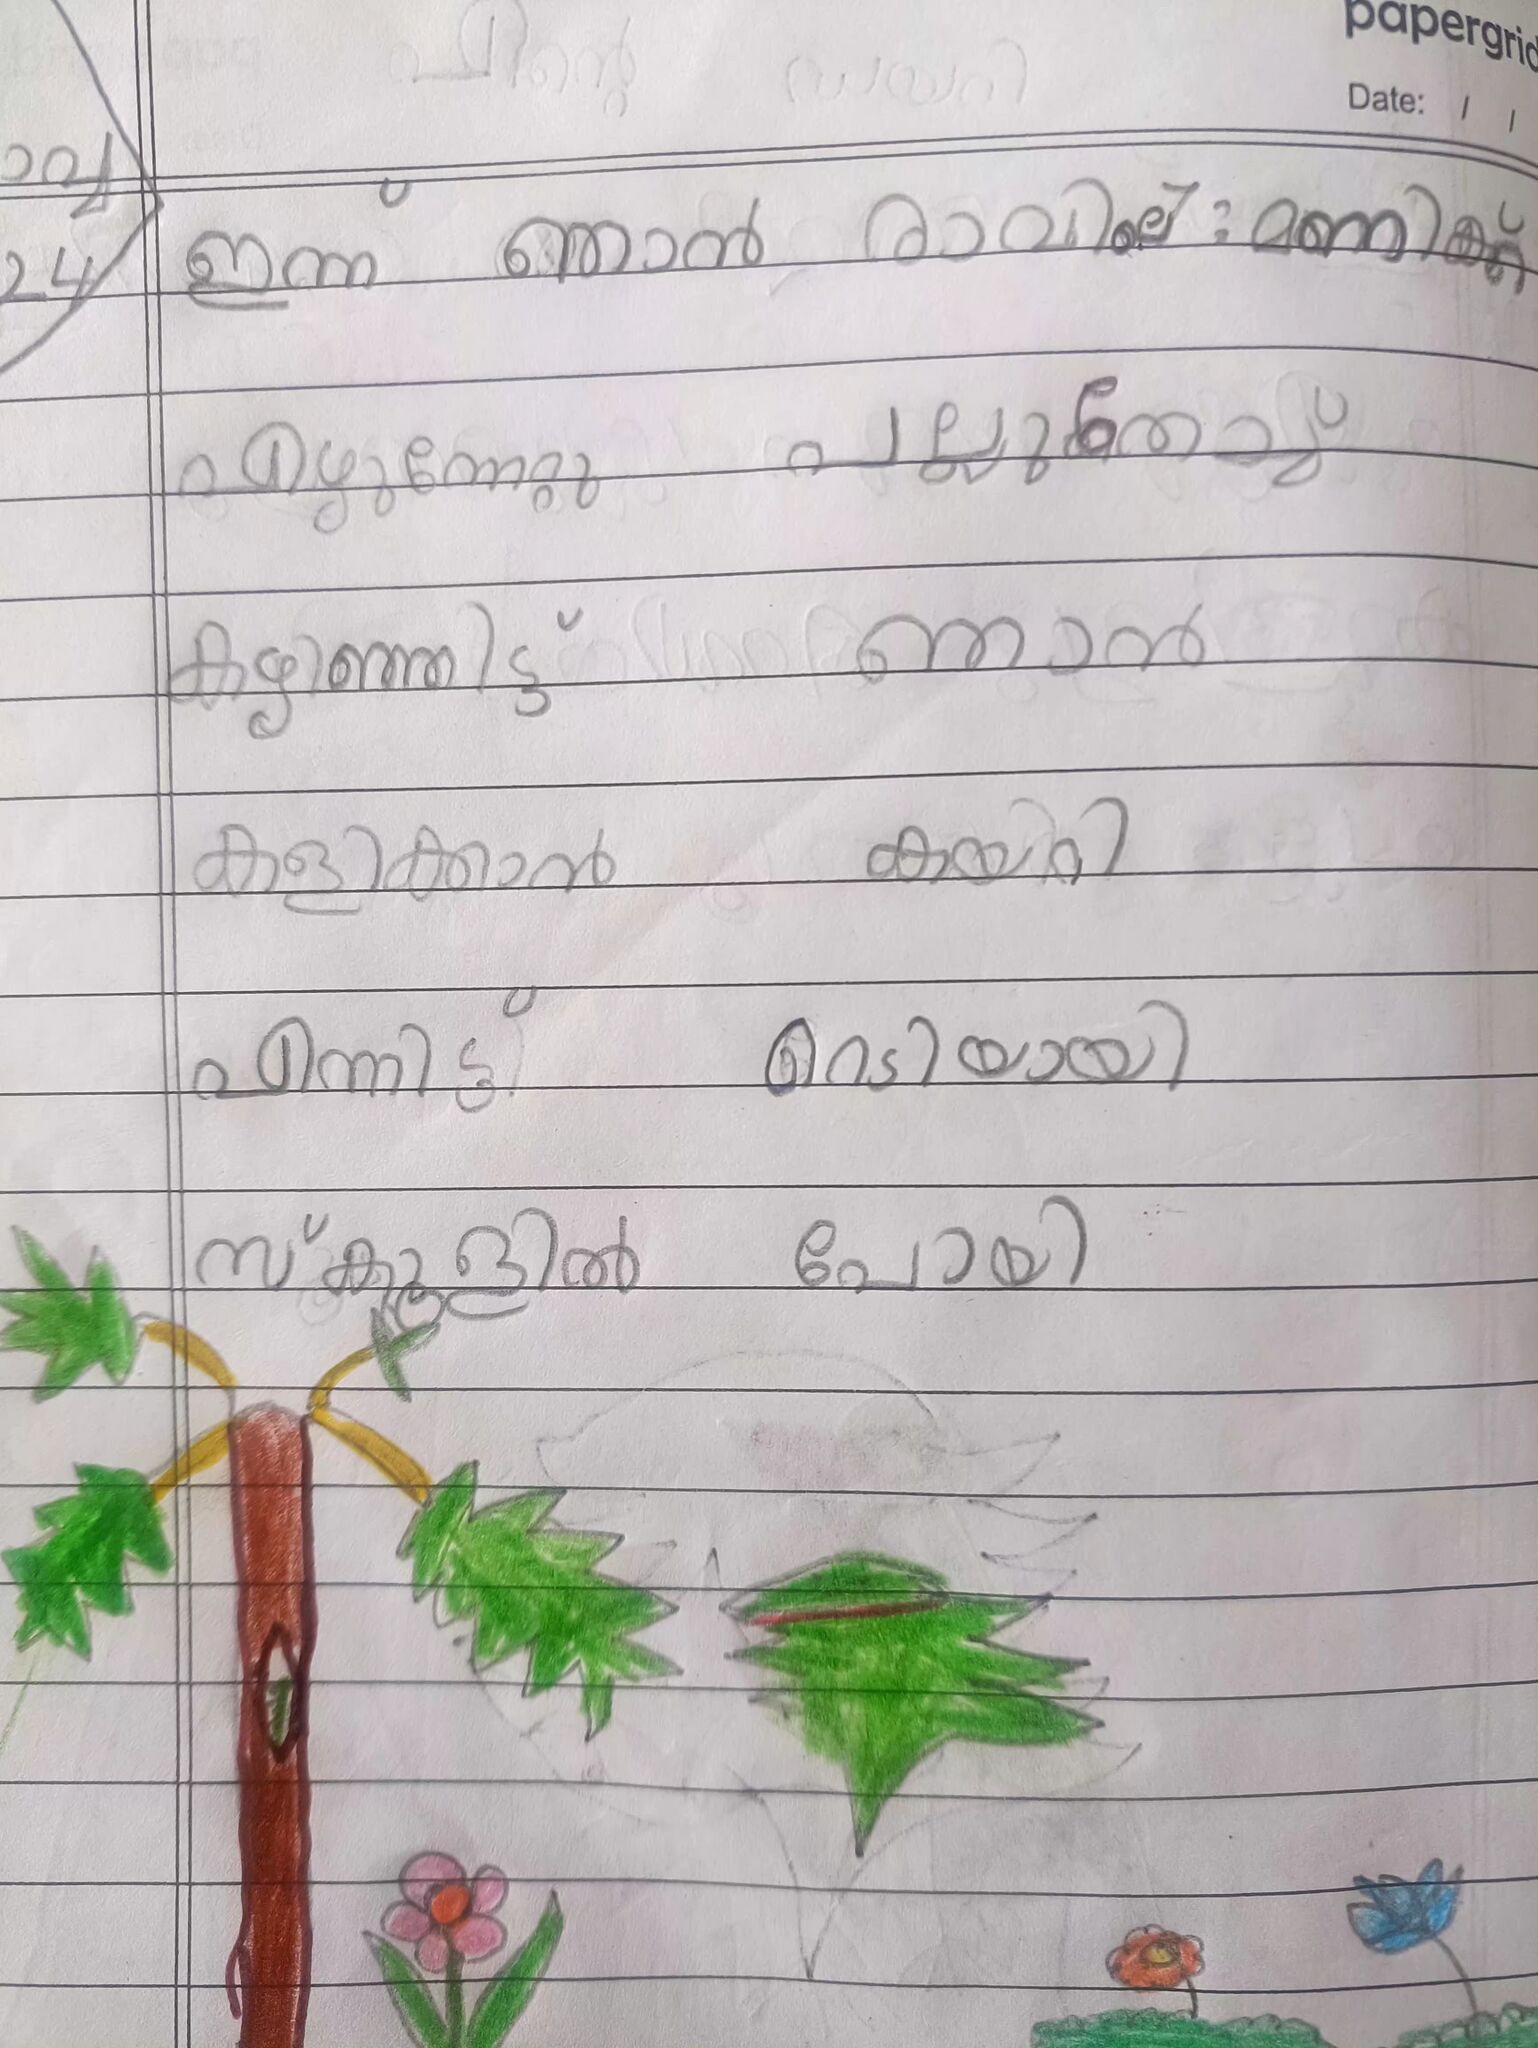 papergrid
Date: / /
24
ഇന്ന് ഞാൻ രാവിലെ : മണിക്ക്
എഴുന്നേറ്റു പല്ലുതേച്ച്
കഴിഞ്ഞിട്ട് ഞാൻ
കളിക്കാൻ കയറി
എന്നിട്ട് റെടിയായി
സ്കൂളിൽ പോയി